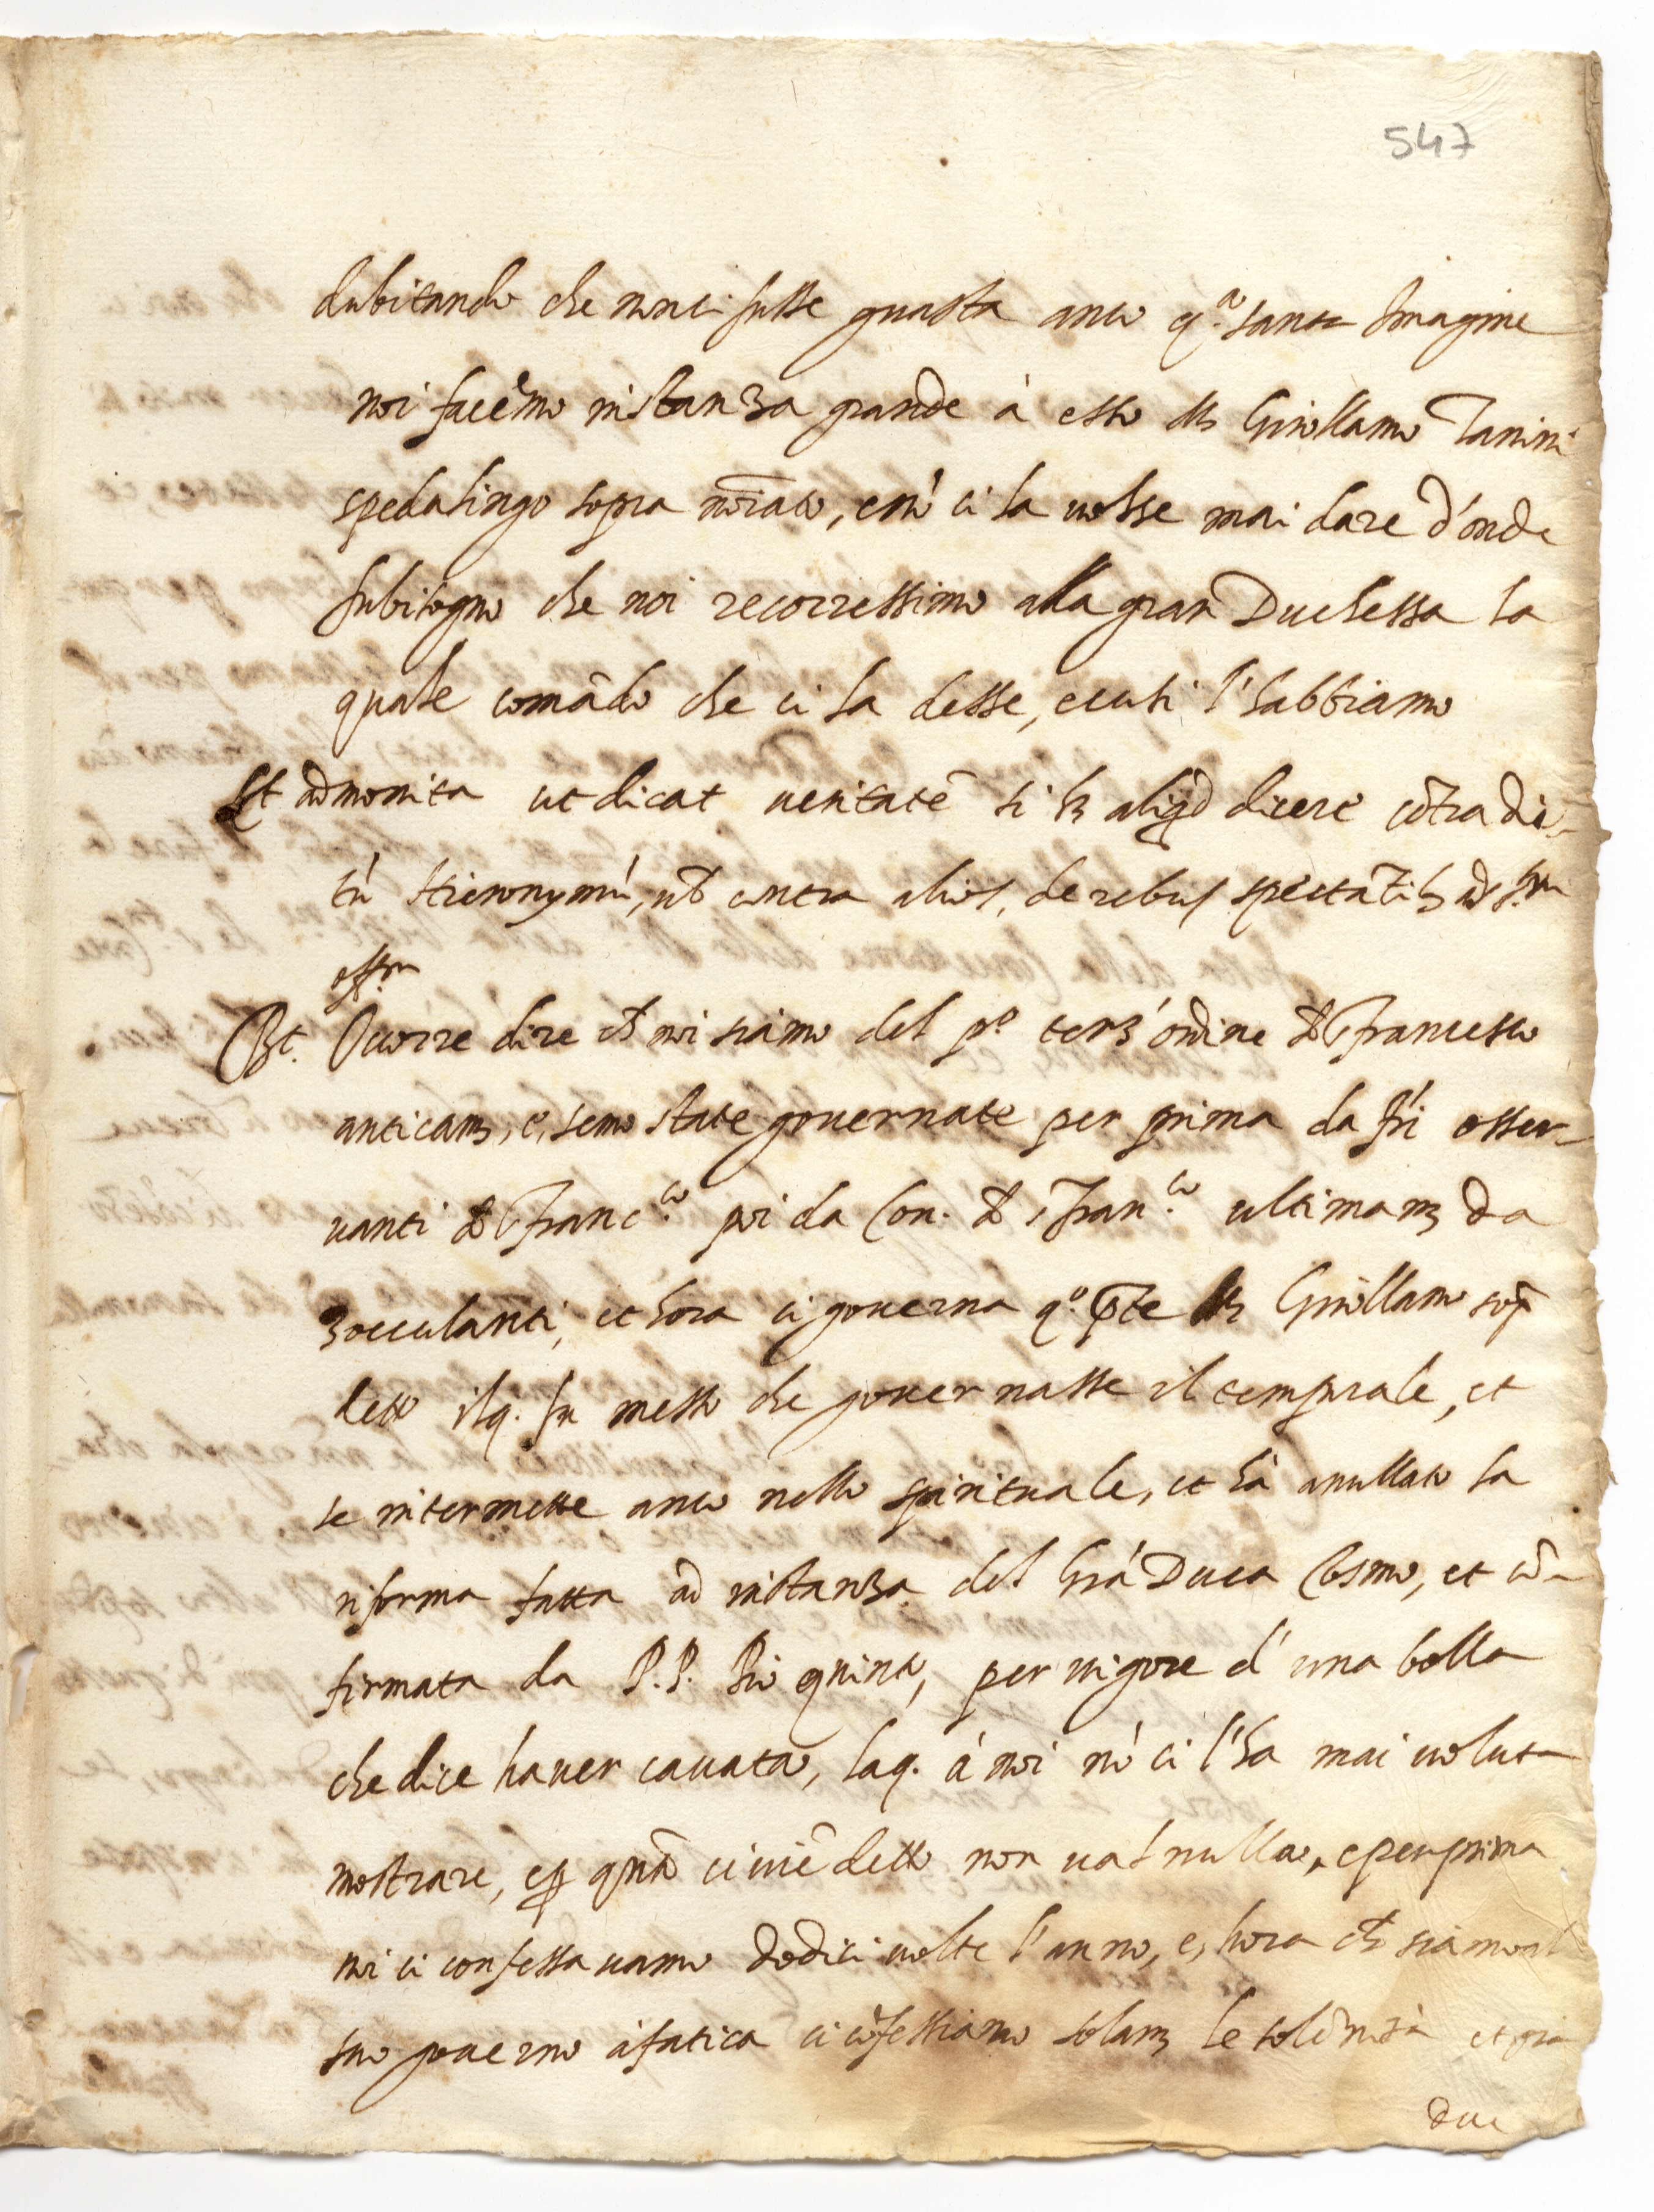 547
dubitando che non ci fusse guasta anco q.ᵃ santa Imagine
noi facẽmo instanza grande à esso Mʳ Girollamo Tanini
spedalingo sopra nõiato, e nõ ci la uolse mai dare d'onde
fu bisogno che noi recorressimo alla gran Duchessa la
quale comãdò che ci la desse, e cusi l'habbiamo
Et admonita ut dicat ueritatẽ si hʒ aliqd dicere cõtra di-
tũ Hieronymũ, uł contra alios, de rebus spectãtibʒ ad S.ᵐ
off.ᵐ
Rt. Occorre dire ch noi siamo del pº terz'ordine di S Francesco
anticamʒ, e, semo state gouernate per prima da frĩ osser-
uanti di S Franc.ᶜᵒ poi da Con. di S Fran.ᶜᵒ ultimamʒ da
zocculanti, et hora ci governa q.º pñte Mʳ Girollamo sopʳ
detto ilq. fu messo che gouernasse il temporale, et
se intermette anco nello spirituale, et hà anullato la
riforma fatta ad instanza del Grã Duca Cosmo, et cõ-
firmata da P.P. Pio quinto, per uigore d'una bolla
che dice hauer cauata, laq. à noi nõ ci l'ha mai uoluta
mostrare, e p quãto ci uiẽ detto non ual nulla, e per prima
noi ci confessauamo dodici uolte l'anno, e, hora ch siamo al
suo gouerno à fatica ci cõfessiamo solamʒ le solẽnità et gia
due